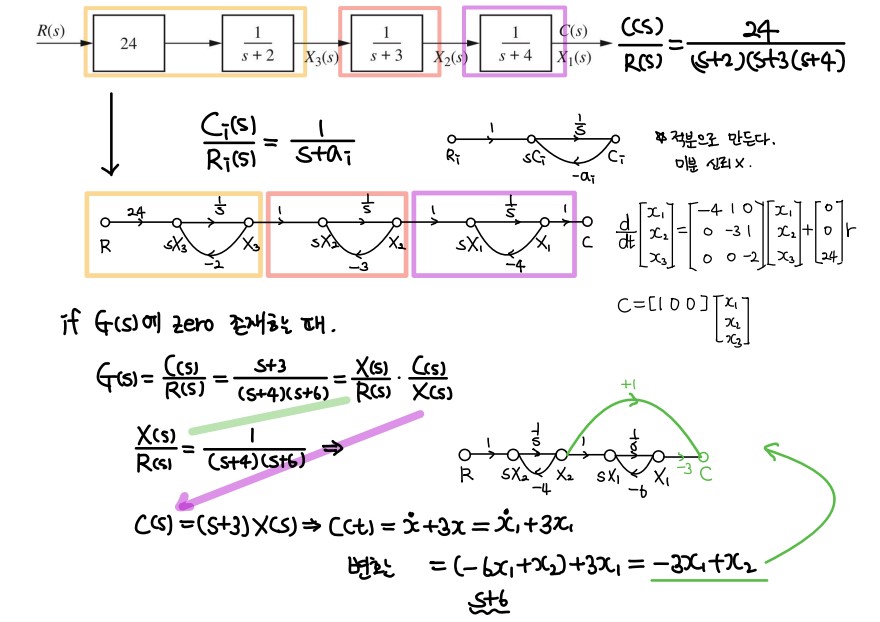 R(s) 24 1/(s + 2) X₃(s) 1/(s + 3) X₂(s) 1/(s + 4) C(s) X₁(s)
C(s)/R(s) = 24/((s+2)(s+3(s+4)
Cᵢ(s)/Rᵢ(s) = 1/(s+aᵢ)
1 1/s Rᵢ sCᵢ Cᵢ -aᵢ
* 적분으로 만든다.
미분 신리 X.
24 1/s 1 1/s 1 1/s 1
R sX₃ X₃ sX₂ X₂ sX₁ X₁ C
-2 -3 -4
d/dt [x₁ x₂ x₃] = [-4 1 0 0 -3 1 0 0 -2] [x₁ x₂ x₃] + [0 0 24] r
C = [1 0 0] [x₁ x₂ x₃]
if G(s)에 zero 존재하는 때.
G(s) = C(s)/R(s) = s+3/((s+4)(s+6)) = X(s)/R(s) · C(s)/X(s)
X(s)/R(s) = 1/((s+4)(s+6)) ⇒
+1
1 1/s 1 1/s -3
R sX₂ X₂ sX₁ X₁ C
-4 -6
C(s) = (s+3) X(s) ⇒ C(t) = ẋ + 3x = ẋ₁ + 3x₁
변환 = (-6x₁ + x₂) + 3x₁ = -3x₁ + x₂
s+6